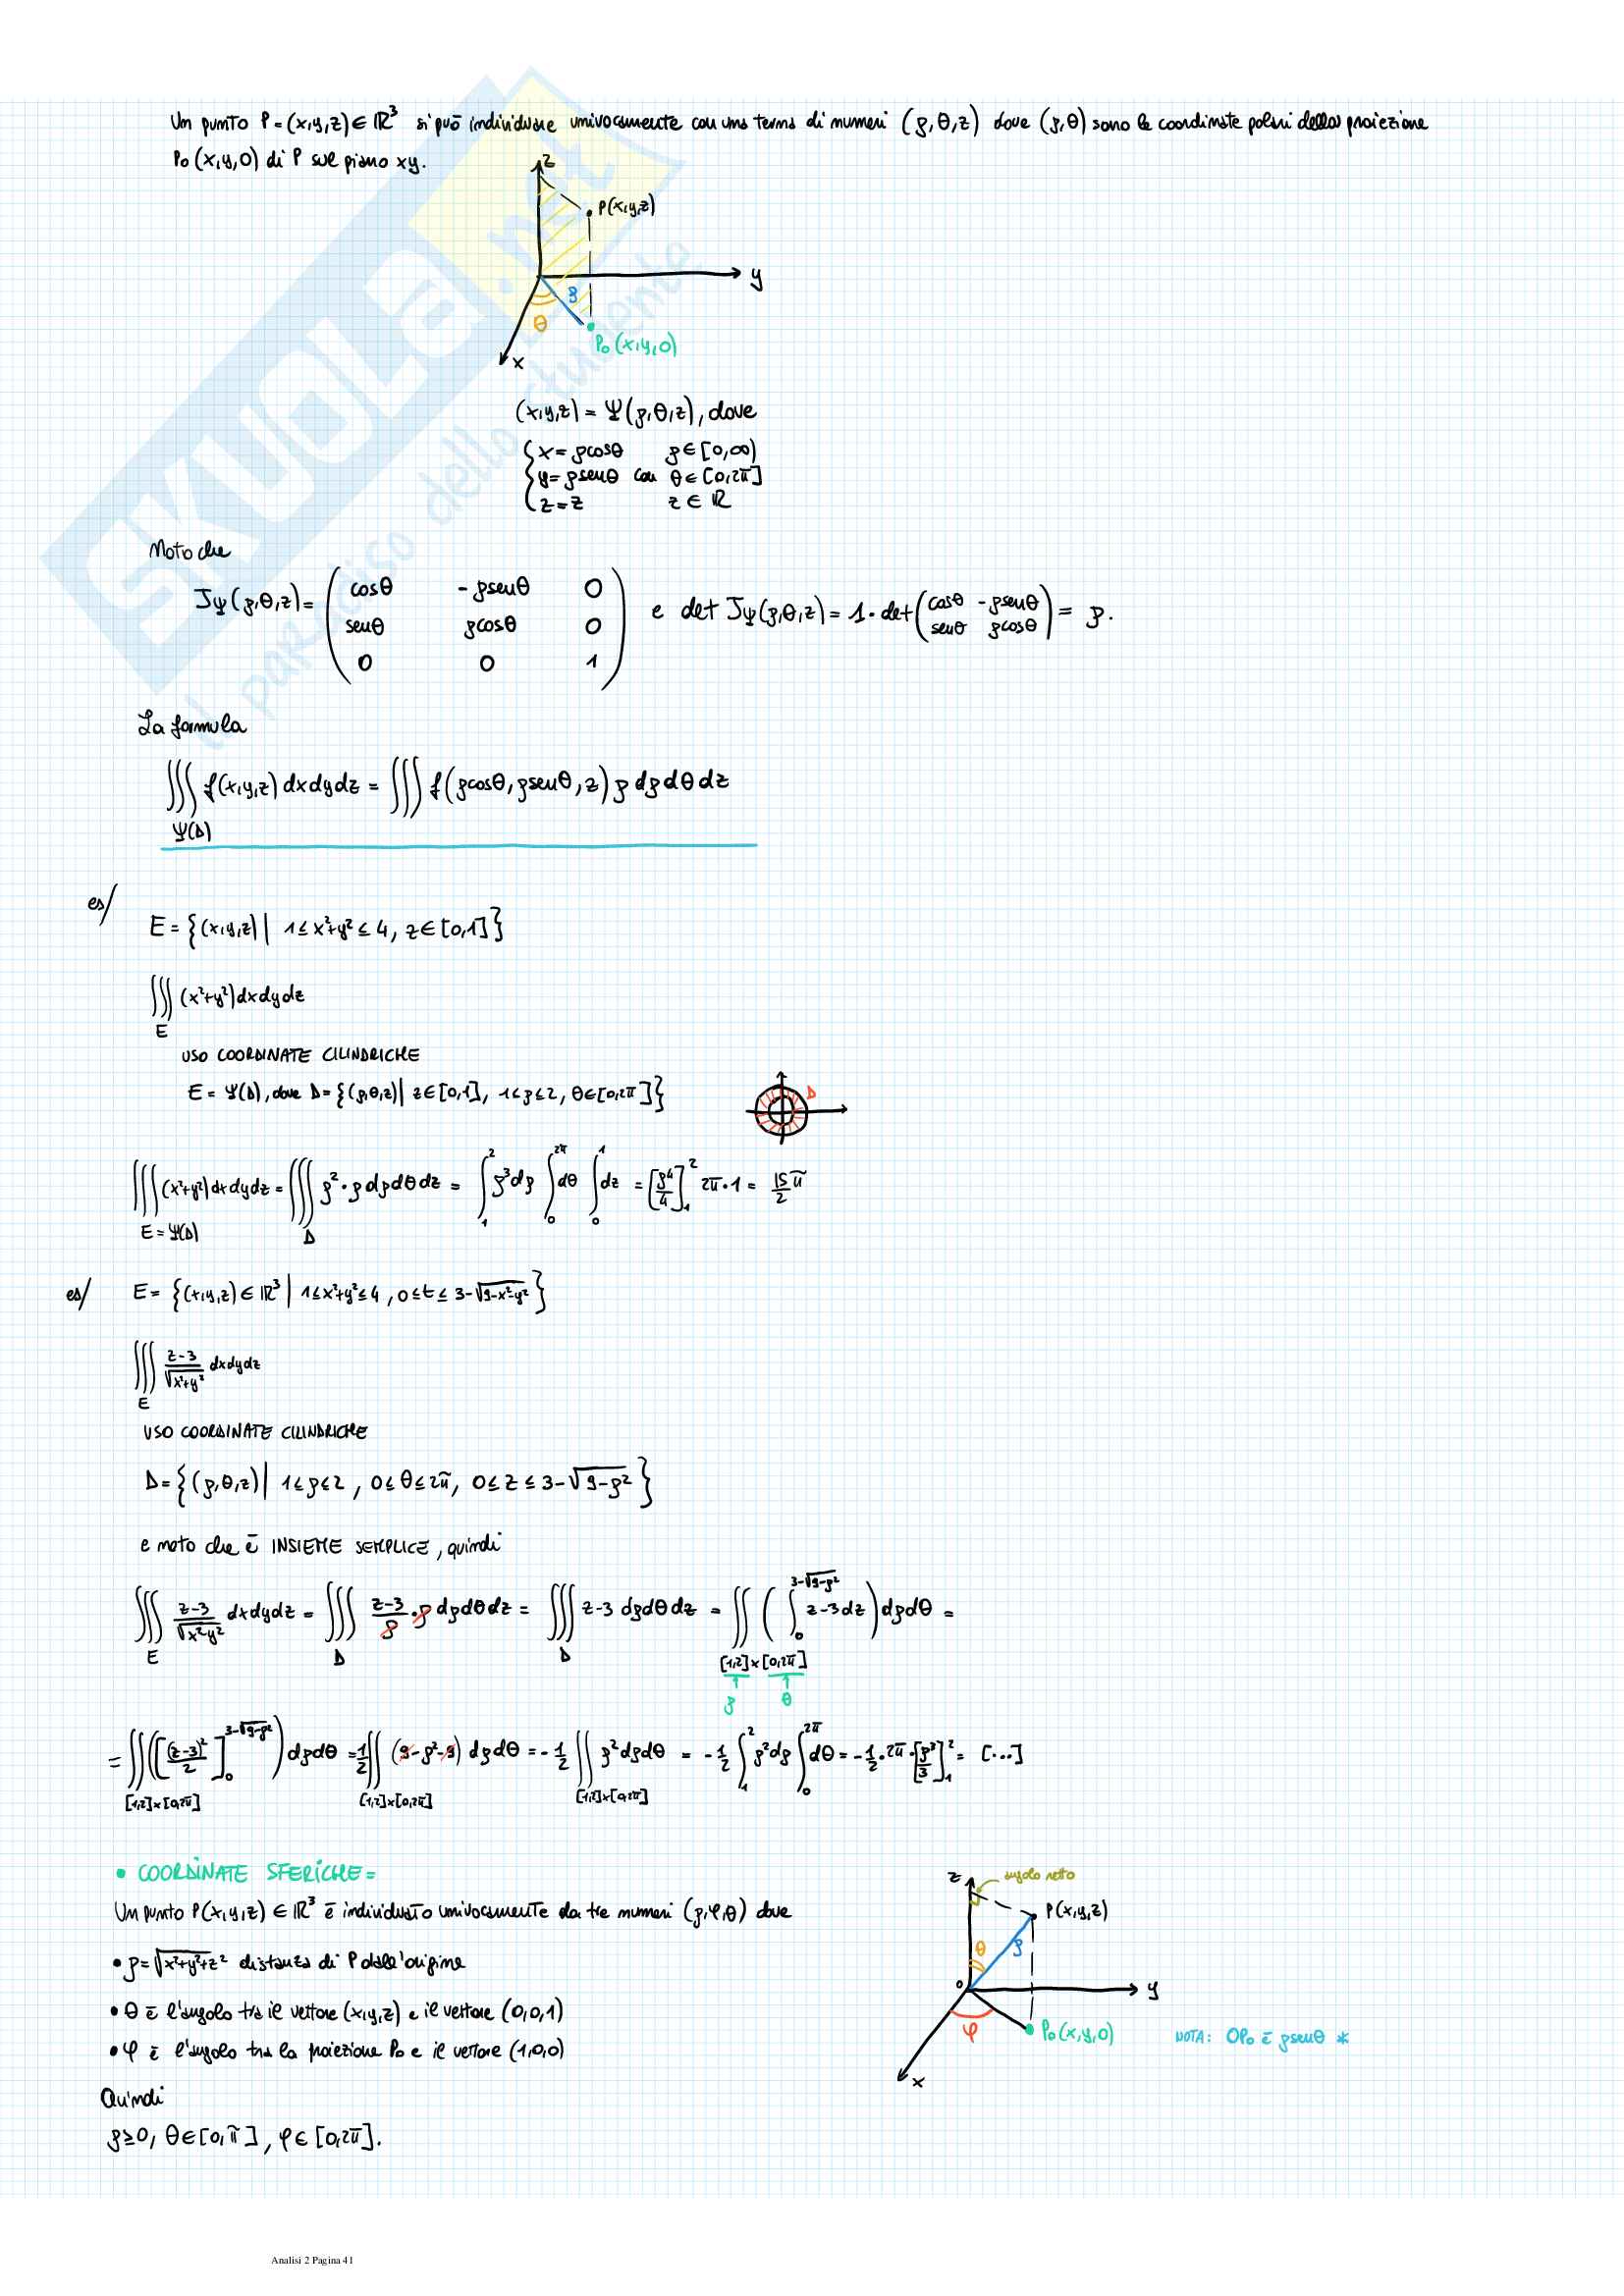 Un punto P=(x,y,z)∈ℝ³ si può individuare univocamente con una terna di numeri (ρ,θ,z) dove (ρ,θ) sono le coordinate polari della proiezione
P₀(x,y,0) di P sul piano xy.
z
P(x,y,z)
y
ρ
θ
P₀(x,y,0)
x
(x,y,z) = Ψ(ρ,θ,z), dove
{ x=ρcosθ ρ∈[0,∞)
y=ρsenθ con θ∈[0,2π]
z=z z∈ℝ
Noto che
JΨ(ρ,θ,z) = ( cosθ -ρsenθ 0
senθ ρcosθ 0
0 0 1 ) e det JΨ(ρ,θ,z) = 1·det( cosθ -ρsenθ
senθ ρcosθ ) = ρ.
La formula
∭ f(x,y,z) dxdydz = ∭ f(ρcosθ, ρsenθ, z) ρ dρ dθ dz
Ψ(D)
es/
E = {(x,y,z) | 1≤x²+y²≤4, z∈[0,1]}
∭ (x²+y²)dxdydz
E
USO COORDINATE CILINDRICHE
E = Ψ(D), dove D={(ρ,θ,z)| z∈[0,1], 1≤ρ≤2, θ∈[0,2π]}
D
∭ (x²+y²)dxdydz = ∭ ρ²·ρ dρdθdz = ∫₁² ρ³dρ ∫₀^2π dθ ∫₀¹ dz = [ρ⁴/4]₁² 2π·1 = 15/2 π
E=Ψ(D) D
es/ E = {(x,y,z)∈ℝ³ | 1≤x²+y²≤4, 0≤t≤3-√9-x²-y²}
∭ z-3/√x²+y² dxdydz
E
USO COORDINATE CILINDRICHE
D={(ρ,θ,z)| 1≤ρ≤2, 0≤θ≤2π, 0≤z≤3-√9-ρ²}
e noto che è INSIEME SEMPLICE, quindi
∭ z-3/√x²-y² dxdydz = ∭ z-3/ρ·ρ dρdθdz = ∭ z-3 dρdθdz = ∬ (∫₀^3-√9-ρ² z-3dz) dρdθ =
E D D [1,2]×[0,2π]
ρ θ
= ∬ ([(z-3)²/2]₀^3-√9-ρ²) dρdθ = 1/2 ∬ (9-ρ²-9) dρdθ = -1/2 ∬ ρ²dρdθ = -1/2 ∫₁² ρ²dρ ∫₀^2π dθ = -1/2·2π·[ρ³/3]₁² = [...]
[1,2]×[0,2π] [1,2]×[0,2π] [1,2]×[0,2π]
• COORDINATE SFERICHE=
Un punto P(x,y,z)∈ℝ³ è individuato univocamente da tre numeri (ρ,φ,θ) dove
• ρ=√x²+y²+z² distanza di P dall'origine
• θ è l'angolo tra il vettore (x,y,z) e il vettore (0,0,1)
• φ è l'angolo tra la proiezione P₀ e il vettore (1,0,0)
Quindi
ρ≥0, θ∈[0,π], φ∈[0,2π].
z
angolo retto
P(x,y,z)
θ
ρ
0
y
φ
P₀(x,y,0)
x
NOTA: OP₀ è ρsenθ *
SKUOLA.net
il paradiso dello studente
Analisi 2 Pagina 41